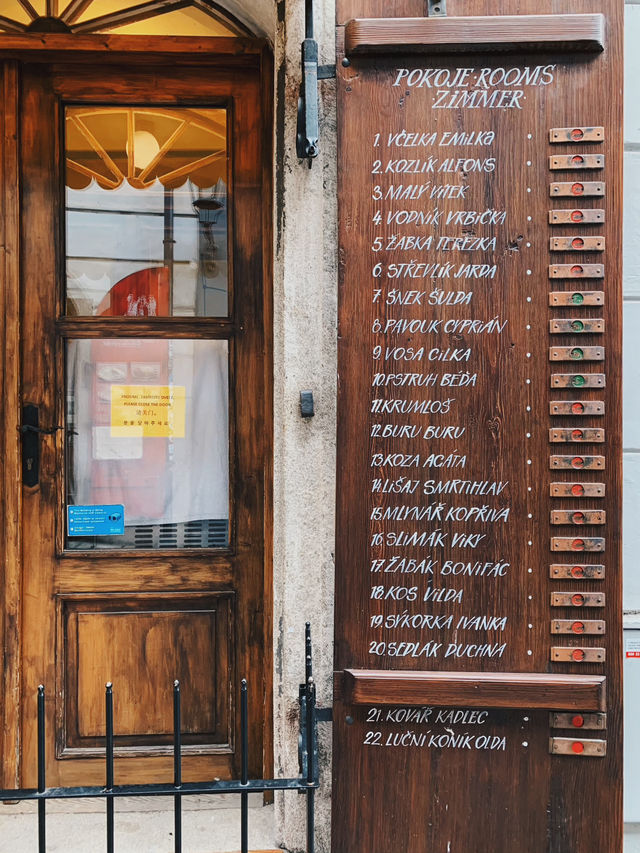 POKOJE·ROOMS
ZIMMER
1. VČELKA EMILKA
2. KOZLÍK ALFONS
3. MALÝ VÍTEK
4. VODNÍK VRBIČKA
5. ŽABKA TEREZKA
6. STŘEVLÍK JARDA
7. ŠNEK ŠULDA
8. PAVOUK CYPRIÁN
9. VOSA CILKA
10. PSTRUH BÉĎA
11. KRUMLOŠ
12. BURU BURU
13. KOZA AGÁTA
14. LIŠAJ SMRTIHLAV
15. MLYNÁŘ KOPŘIVA
16. SLIMÁK VIKY
17. ŽABÁK BONIFÁC
18. KOS VILDA
19. SÝKORKA IVANKA
20. SEDLÁK DUCHNA
21. KOVÁŘ KADLEC
22. LUČNÍ KONÍK OLDA
PLEASE CLOSE THE DOOR
请关门。
문을 닫아주세요